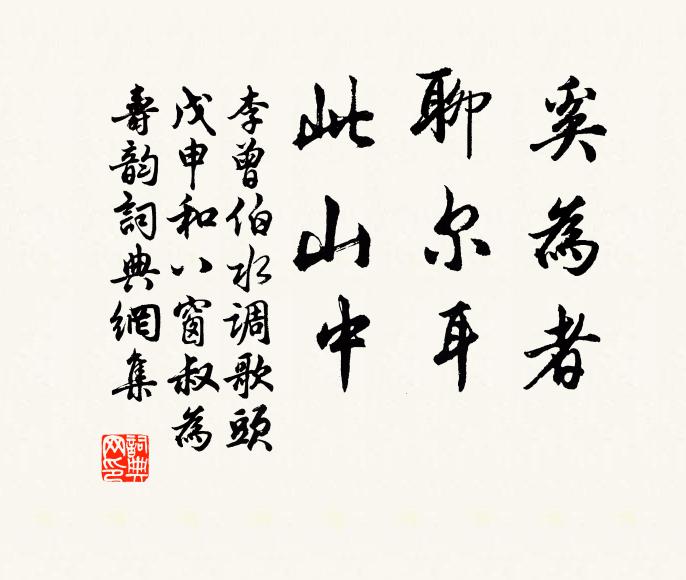 奚為者
聊尔耳
此山中
李曾伯水调歌頭
戊申和八窗叔為
壽韵詞典網集
詞典网印